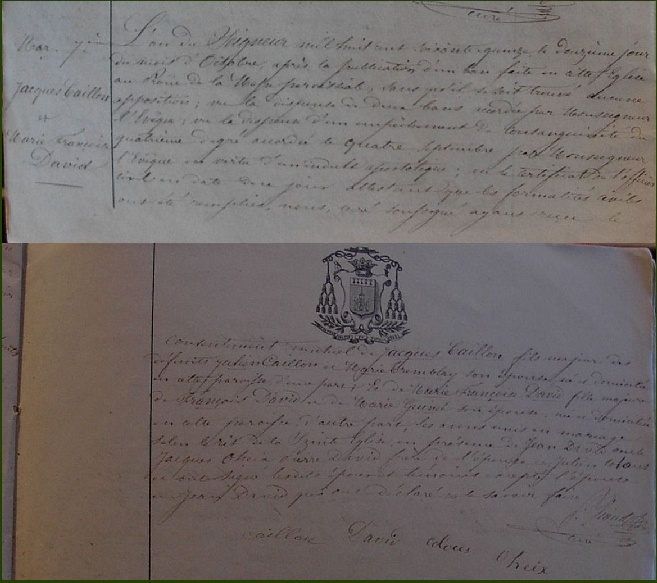 curé
Mar. 7ème
Jacques Caillon
et
Marie Françoise
David
L'an du Seigneur mil huit cent soixante quinze le douzième jour
du mois d'Octobre, après la publication d'un ban faite en cette Eglise
au Prône de la Messe paroissiale, sans qu'il se soit trouvé aucune
opposition; vu la dispense de deux bans accordée par Monseigneur
l'Evêque; vu la dispense d'un empêchement de consanguinité du
quatrième degré accordée le quatre Septembre par Monseigneur
l'Evêque en vertu d'un indult apostolique; vu le certificat de l'officier
civil en date de ce jour attestant que les formalités civiles
ont été remplies, nous, curé soussigné ayant reçu le
consentement mutuel de Jacques Caillon fils majeur des
défunts Julien Caillon et Marie Tremblay son épouse, né et domicilié
en cette paroisse d'une part; Et de Marie Françoise David fille majeure
de François David et de Marie son épouse, née et domiciliée
en cette paroisse, d'autre part, les avons unis en mariage
selon le rit de la Sainte Eglise en présence de Jean
Jacques Pierre David frère de l'épouse
l'épouse
et Jean David qui ont déclaré ne le savoir faire
curé
Caillon David